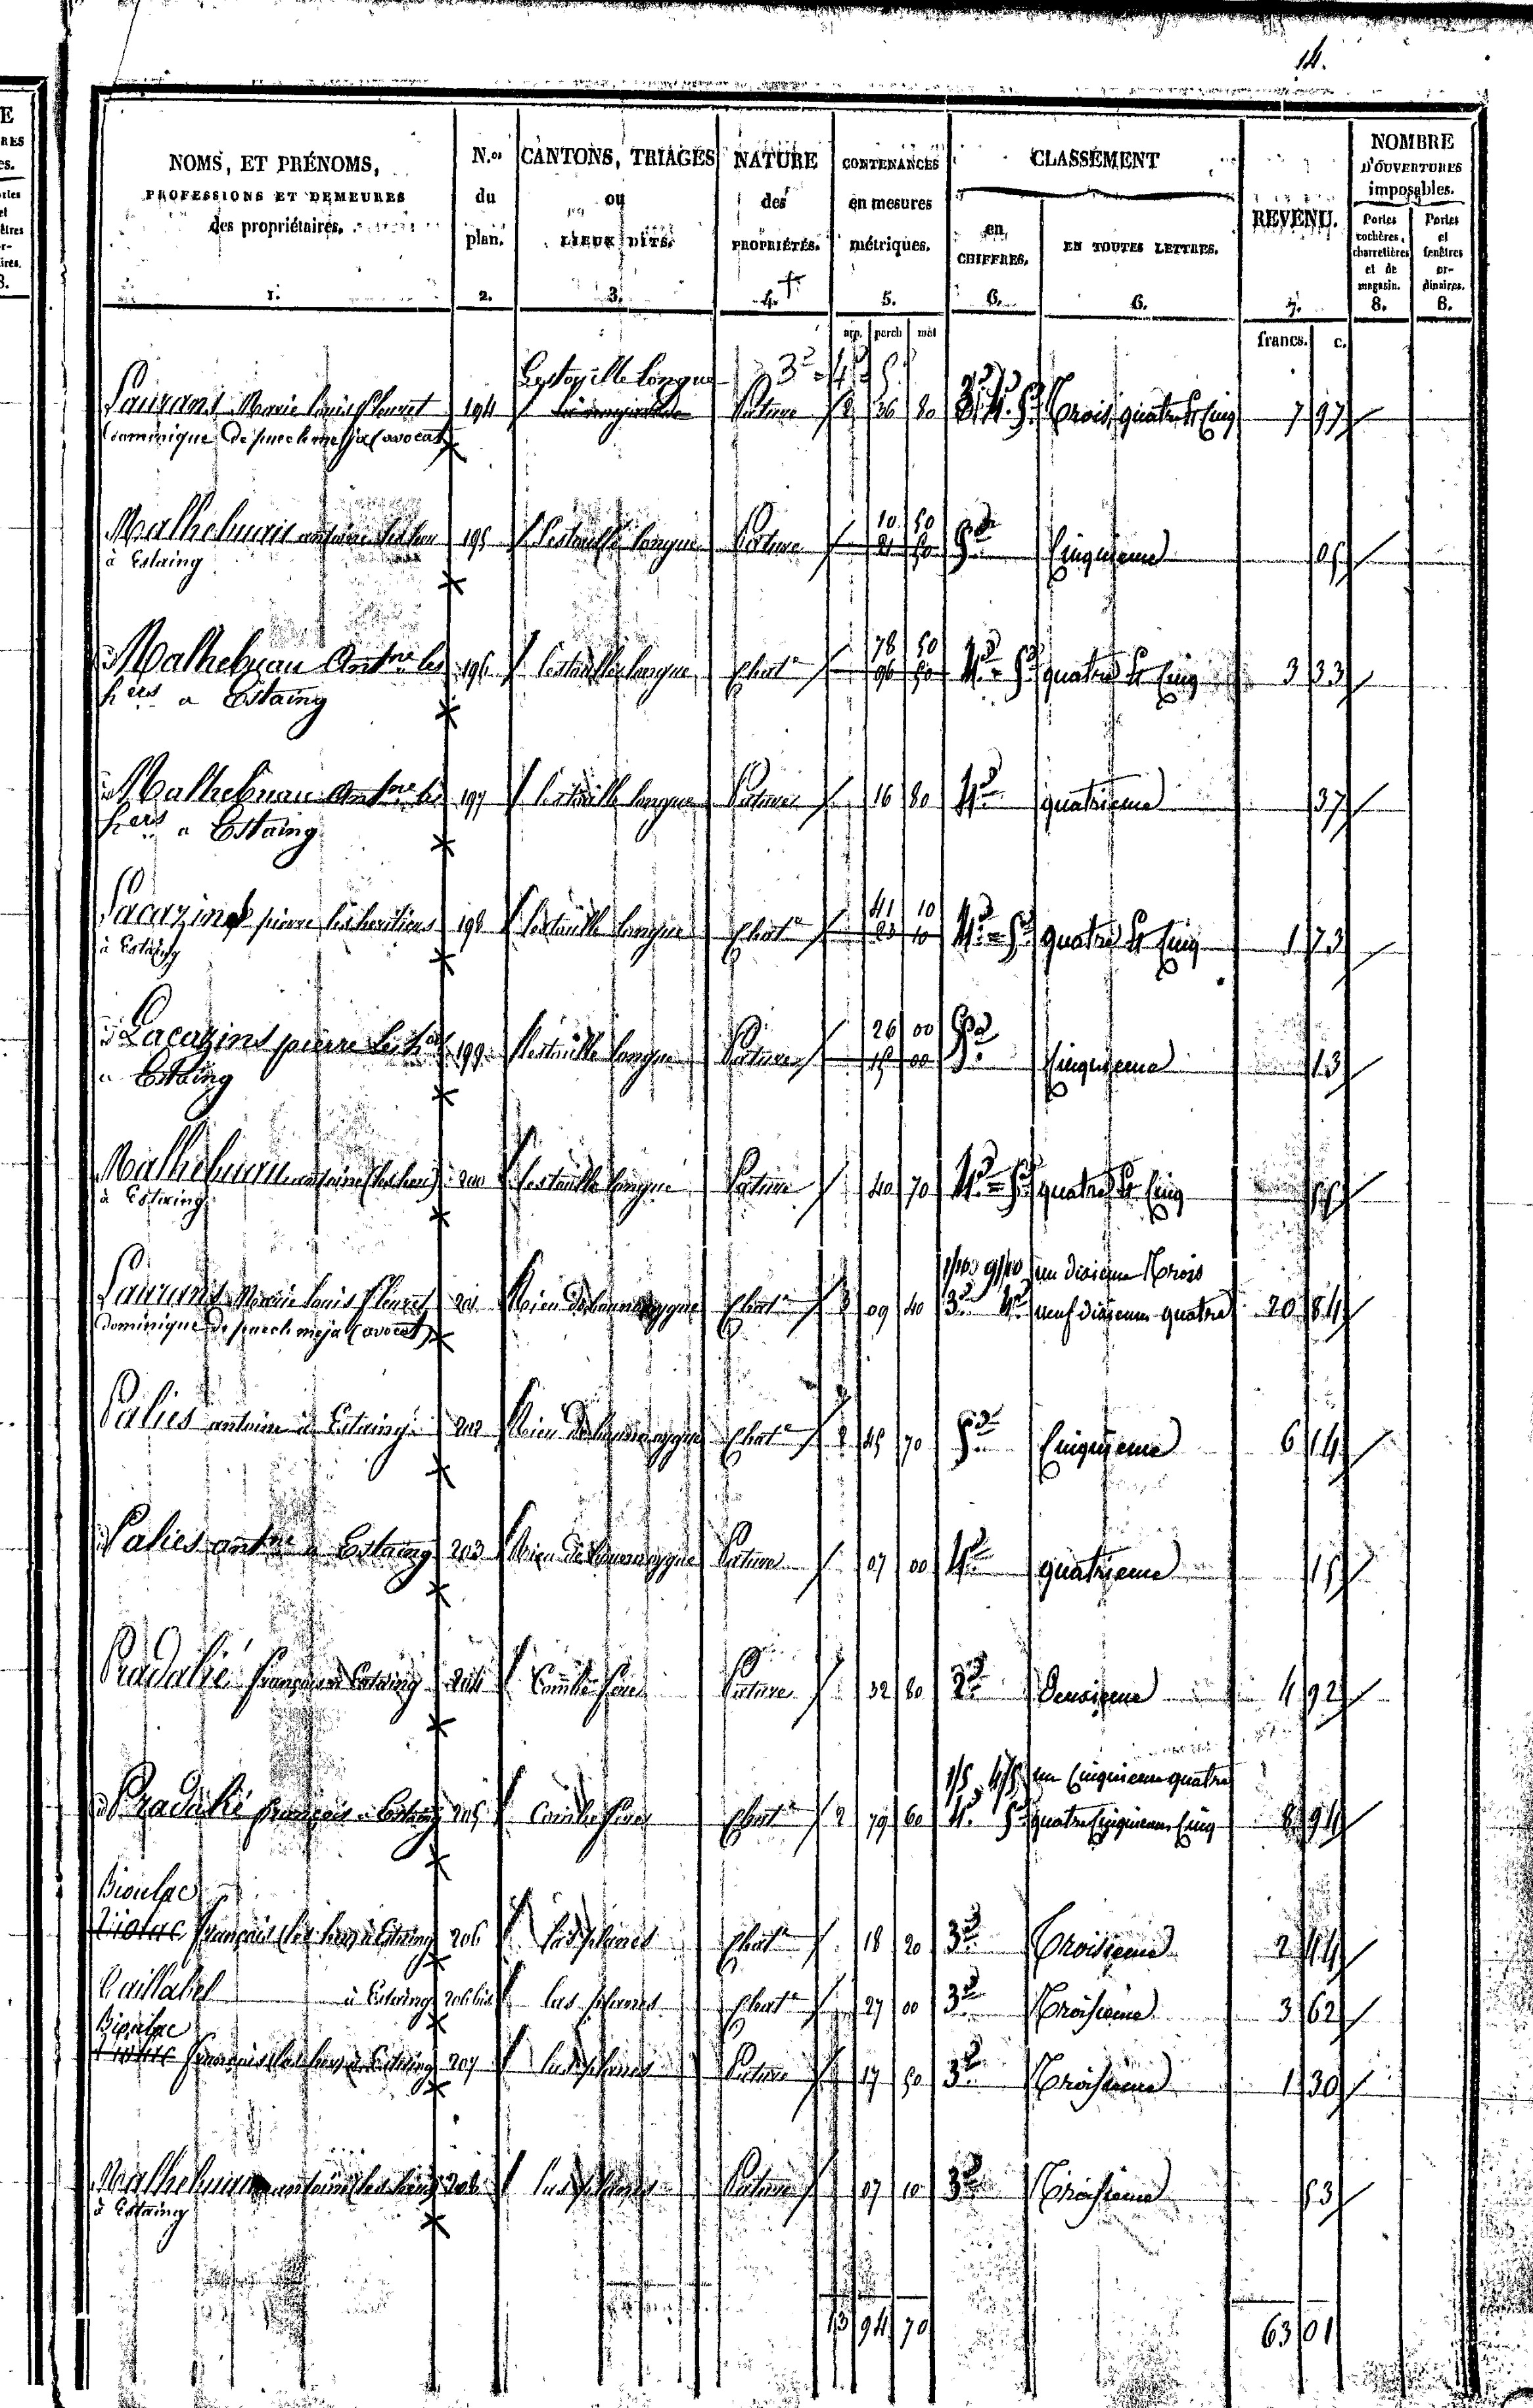 14.
NOMS, ET PRÉNOMS, PROFESSIONS ET DEMEURES des propriétaires. 1.
N.os du plan. 2.
CANTONS, TRIAGES ou LIEUX DITS. 3.
NATURE des PROPRIÉTÉS. 4.
CONTENANCES en mesures métriques. 5.
CLASSEMENT
en CHIFFRES. 6.
EN TOUTES LETTRES. 6.
REVENU. 7.
NOMBRE D'OUVERTURES imposables.
Portes cochères, charretières et de magasin. 8.
Portes et fenêtres ordinaires. 8.
arp. perch mèt francs. c.
3e = 4e 5e
Laurans Marie Louis Fleuret 194 Pature 2 36 80 3e 4e 5e Trois, quatre et Cinq 7 97
dominique de puech meja (avocat)
10 50
Malhebuau antoine les her 195 Lestouille longue Pature 21 50 5e Cinquieme 05
à Estaing
78 50
Malhebuau Antne les 196 Lestouille longue Chatre 96 50 4e = 5e quatre et Cinq 3 33
hers a Estaing
Malhebuau Antne les 197 Lestouille longue Pature 16 80 4e quatrieme 37
hers a Estaing
41 10
Lacazins pierre les heritiers 198 Lestouille longue Chatre 23 10 4e = 5e quatre et Cinq 1 73
à Estaing
26 00
Lacazins pierre les hers 199 Lestouille longue Pature 15 00 5e Cinquieme 13
a Estaing
Malhebuau antoine (les her) 200 Lestouille longue Pature 40 70 4e = 5e quatre et Cinq
à Estaing
1/10 9/10 un dixieme Trois
Laurans Marie Louis Fleuret 201 Chatre 09 40 3e 4e neuf dixiemes quatre 20 84
dominique de puech meja (avocat)
Palies antoine à Estaing 202 Chatre 2 45 70 5e Cinquieme 6 14
Palies antne a Estaing 203 Pature 07 00 4e quatrieme 15
Pradalié françois a Estaing 204 Combe Pature 32 80 2e Deuxieme 4 92
1/5 4/5 un Cinquieme quatre
Pradalié françois a Estaing 205 Combe Chatre 2 79 60 4e 5e quatre Cinquiemes Cinq 8 94
Bioulac
françois (les her) à Estaing 206 las planes Chatre 18 20 3e Troisieme 2 44
Caillabel à Estaing 206 bis las planes Chatre 27 00 3e Troisieme 3 62
Bioulac
françois (les her) à Estaing 207 las planes Pature 17 50 3e Troisieme 1 30
Malhebuau antoine (les her) 208 las planes Pature 07 10 3e Troisieme 53
à Estaing
13 94 70 63 01